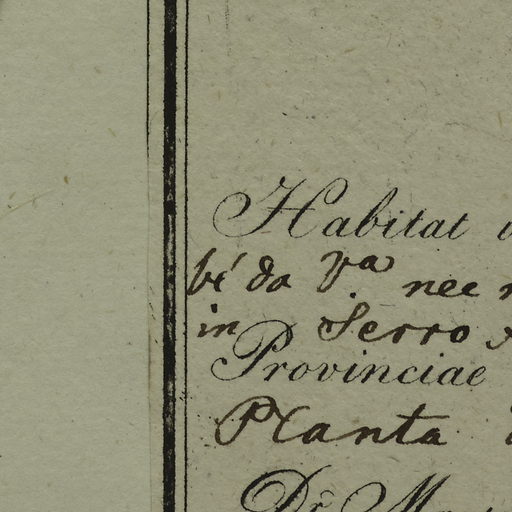 Habitat
da va nec
in Serro
Provinciae
Planta
Dr. Mar